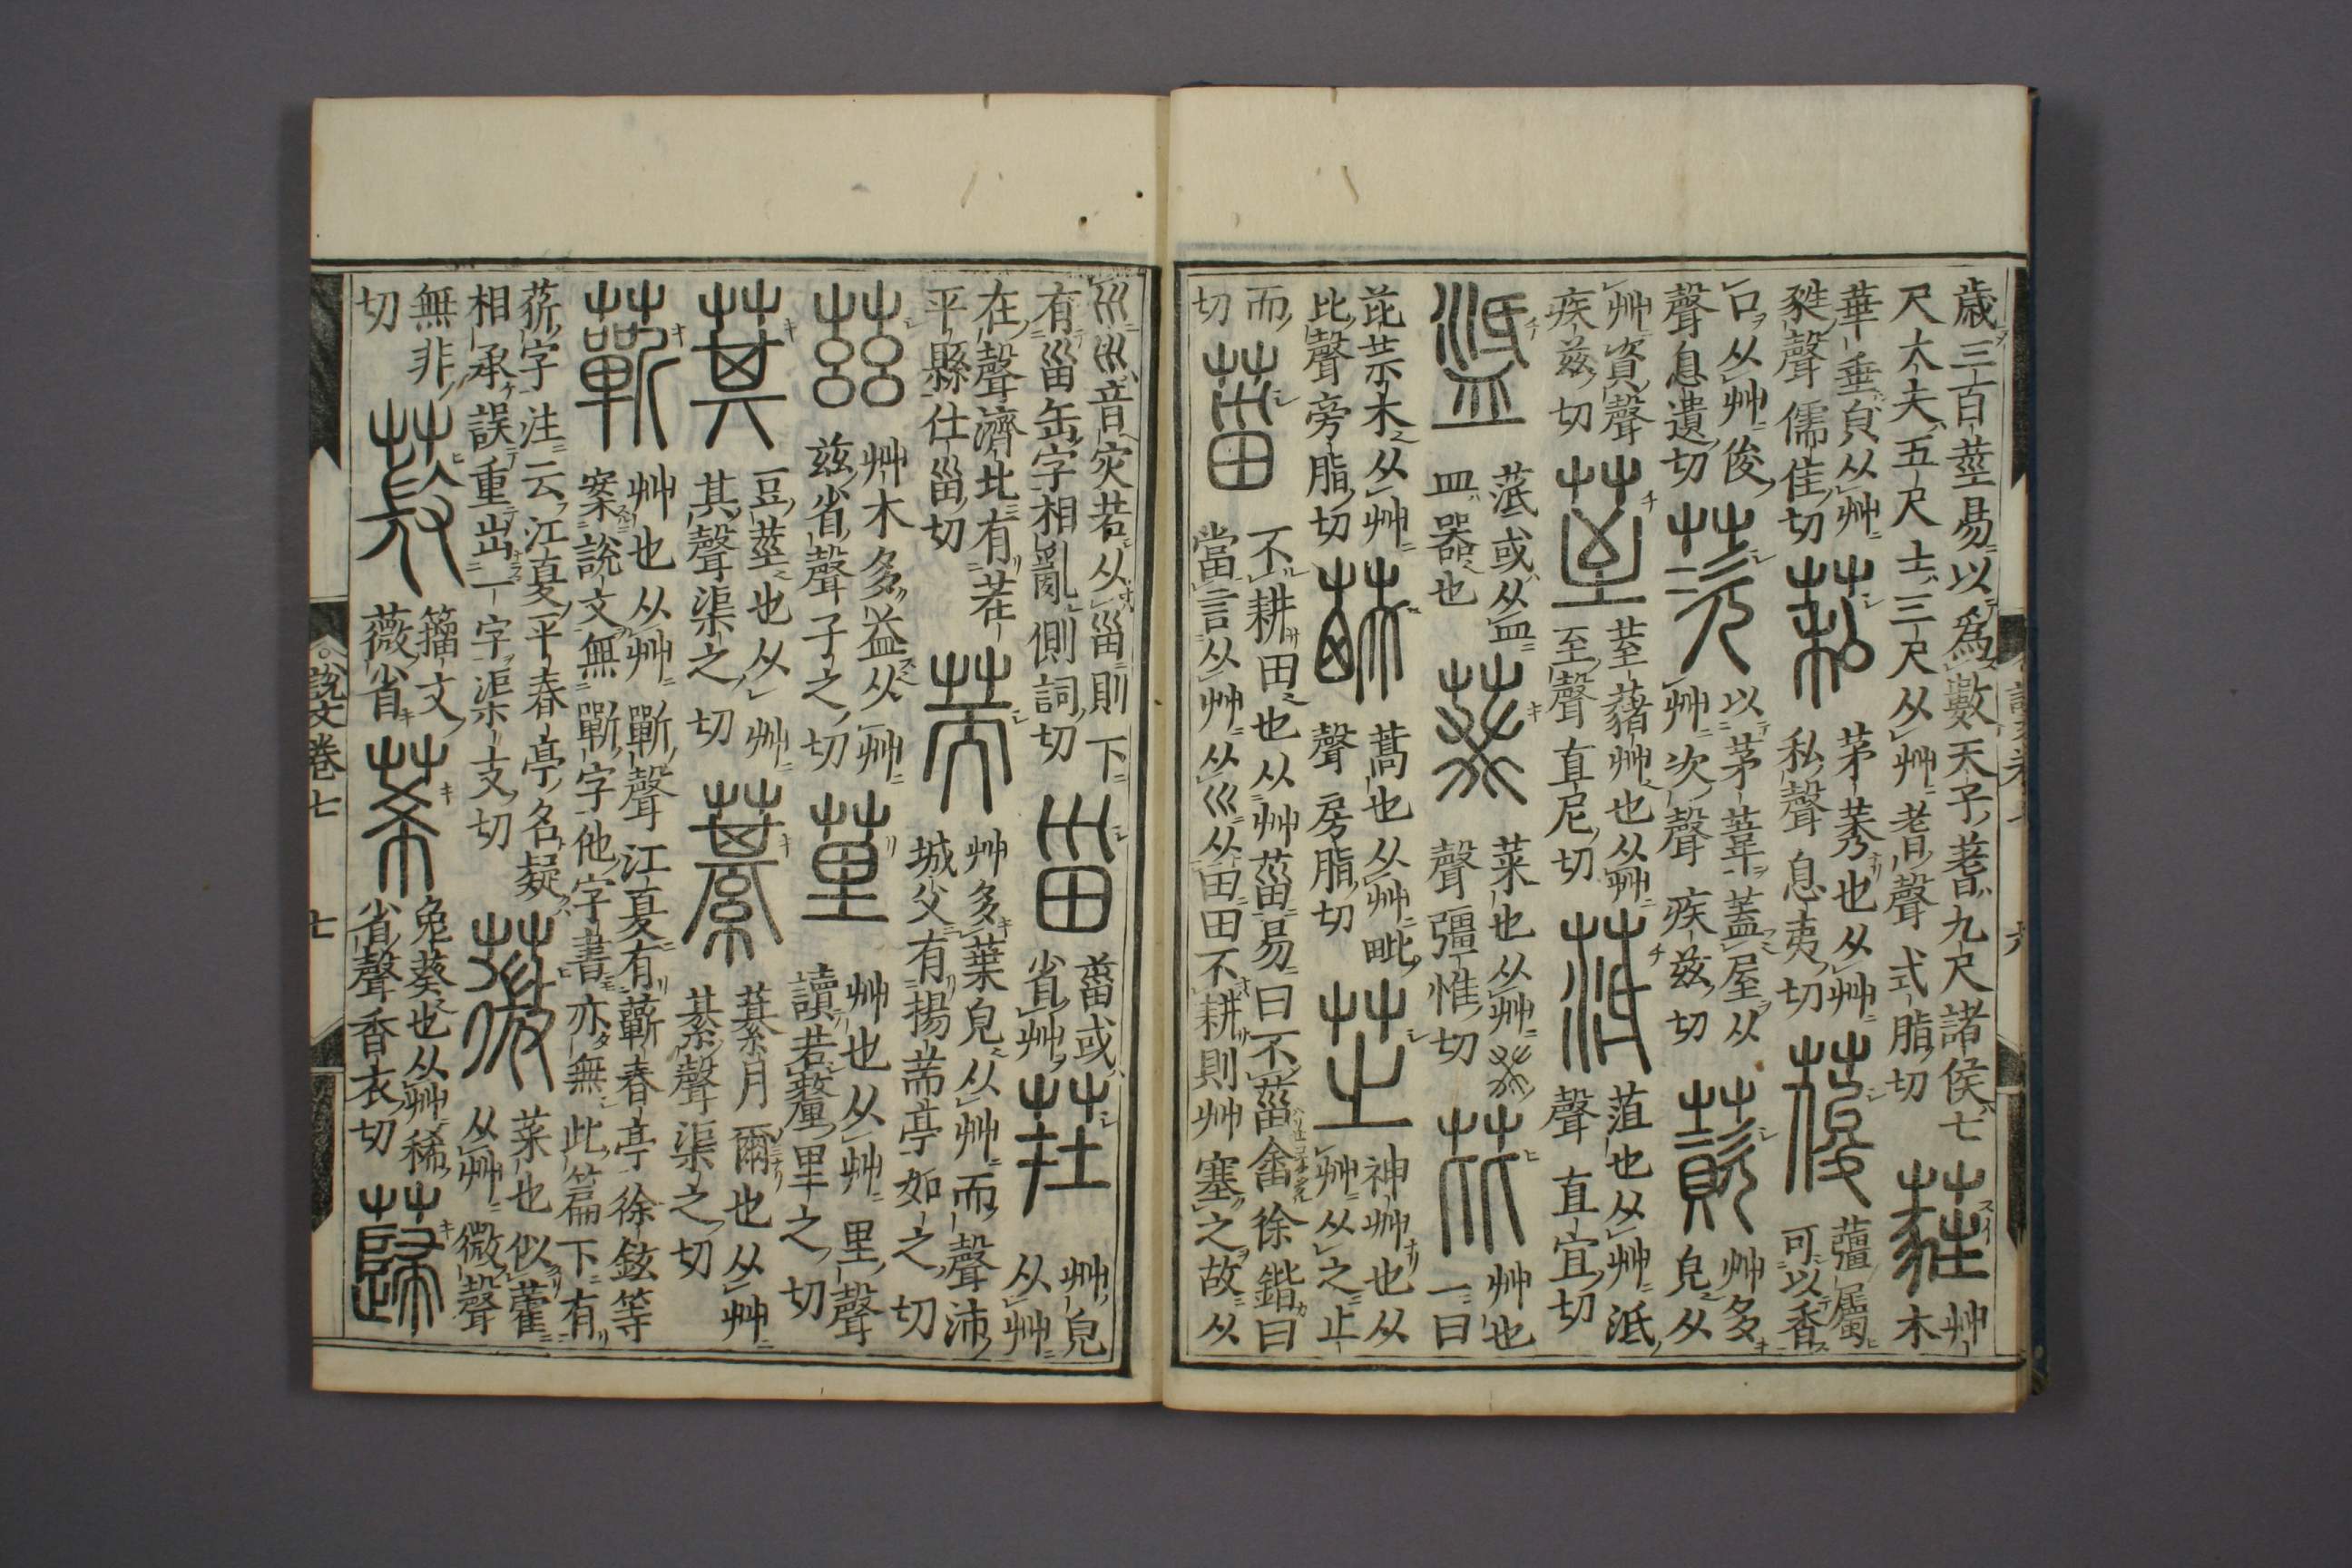 歲三百莖易以爲數天子蓍九尺諸侯七
尺大夫五尺士三尺从艸耆聲式脂切
蕤
艸
木
華垂皃从艸
甤聲儒佳切
䓲
茅秀也从艸
私聲息夷切
葰
薑屬
可以香
口从艸俊
聲息遺切
茨
以茅葦蓋屋从
艸次聲疾兹切
薋
艸多
皃从
艸資聲
疾兹切
荎
荎藸艸也从艸
至聲直尼切
菹也从艸泜
聲直宜切
或从皿
皿器也
葵
菜也从艸癸
聲彊惟切
芘
艸也
一曰
芘茮木从艸
比聲旁脂切
蒿也从艸毗
聲房脂切
芝
神艸也从
艸从之止
而
切
菑
不耕田也从艸甾易曰不菑畬徐鍇曰
當言从艸从巛从田田不耕則艸塞之故从
說文卷七 六
巛巛音灾若从甾則下
有甾缶字相亂側詞切
甾
菑或
省艸
茬
艸皃
从艸
在聲濟北有茬
平縣仕甾切
荋
艸多葉皃从艸而聲沛
城父有揚荋亭如之切
艸木多益从艸
兹省聲子之切
荲
艸也从艸里聲
讀若釐里之切
萁
豆莖也从艸
其聲渠之切
藄
綦月爾也从艸
綦聲渠之切
蘄
艸也从艸𣂪聲江夏有蘄春亭徐鉉等
案說文無𣂪字他字書亦無此篇下有
菥字注云江夏平春亭名疑
相承誤重出一字渠支切
薇
菜也似藿
从艸微聲
無非
切
籀文
薇省
莃
兔葵也从艸稀
省聲香衣切
蘬
說文卷七 七